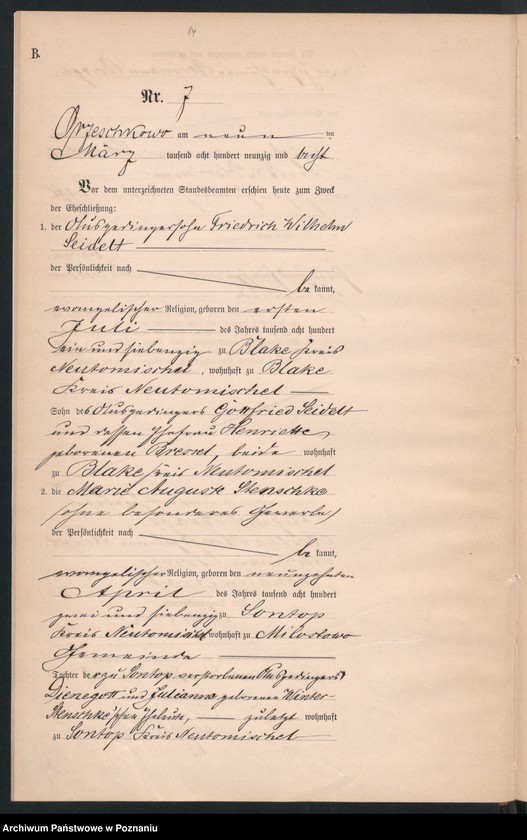 14
B.
Nr. 7
Orzeschkowo am neun ten
März tausend acht hundert neunzig und acht
Vor dem unterzeichneten Standesbeamten erschien heute zum Zweck
der Eheschließung:
1. der Ausgedingersohn Friedrich Wilhelm
Seidelt
der Persönlichkeit nach
be kannt,
evangelischer Religion, geboren den ersten
Juli des Jahres tausend acht hundert
ein und siebenzig zu Blake Kreis
Neutomischel, wohnhaft zu Blake
Kreis Neutomischel
Sohn des Ausgedingers Gottfried Seidelt
und dessen Ehefrau Henriette,
geborenen, beide wohnhaft
zu Blake Kreis Neutomischel
2. die Marie Auguste Stenschke
ohne besonderes Gewerbe,
der Persönlichkeit nach
be kannt,
evangelischer Religion, geboren den neunzehnten
April des Jahres tausend acht hundert
zwei und siebenzig zu Sontop
Kreis Neutomischel, wohnhaft zu Milostowo
Gemeinde
Tochter der zu Sontop verstorbenen Ausgedinger
und Juliane geborenen Winter-
Stenschke'schen Eheleute, zuletzt wohnhaft
zu Sontop Kreis Neutomischel
Archiwum Państwowe w Poznaniu